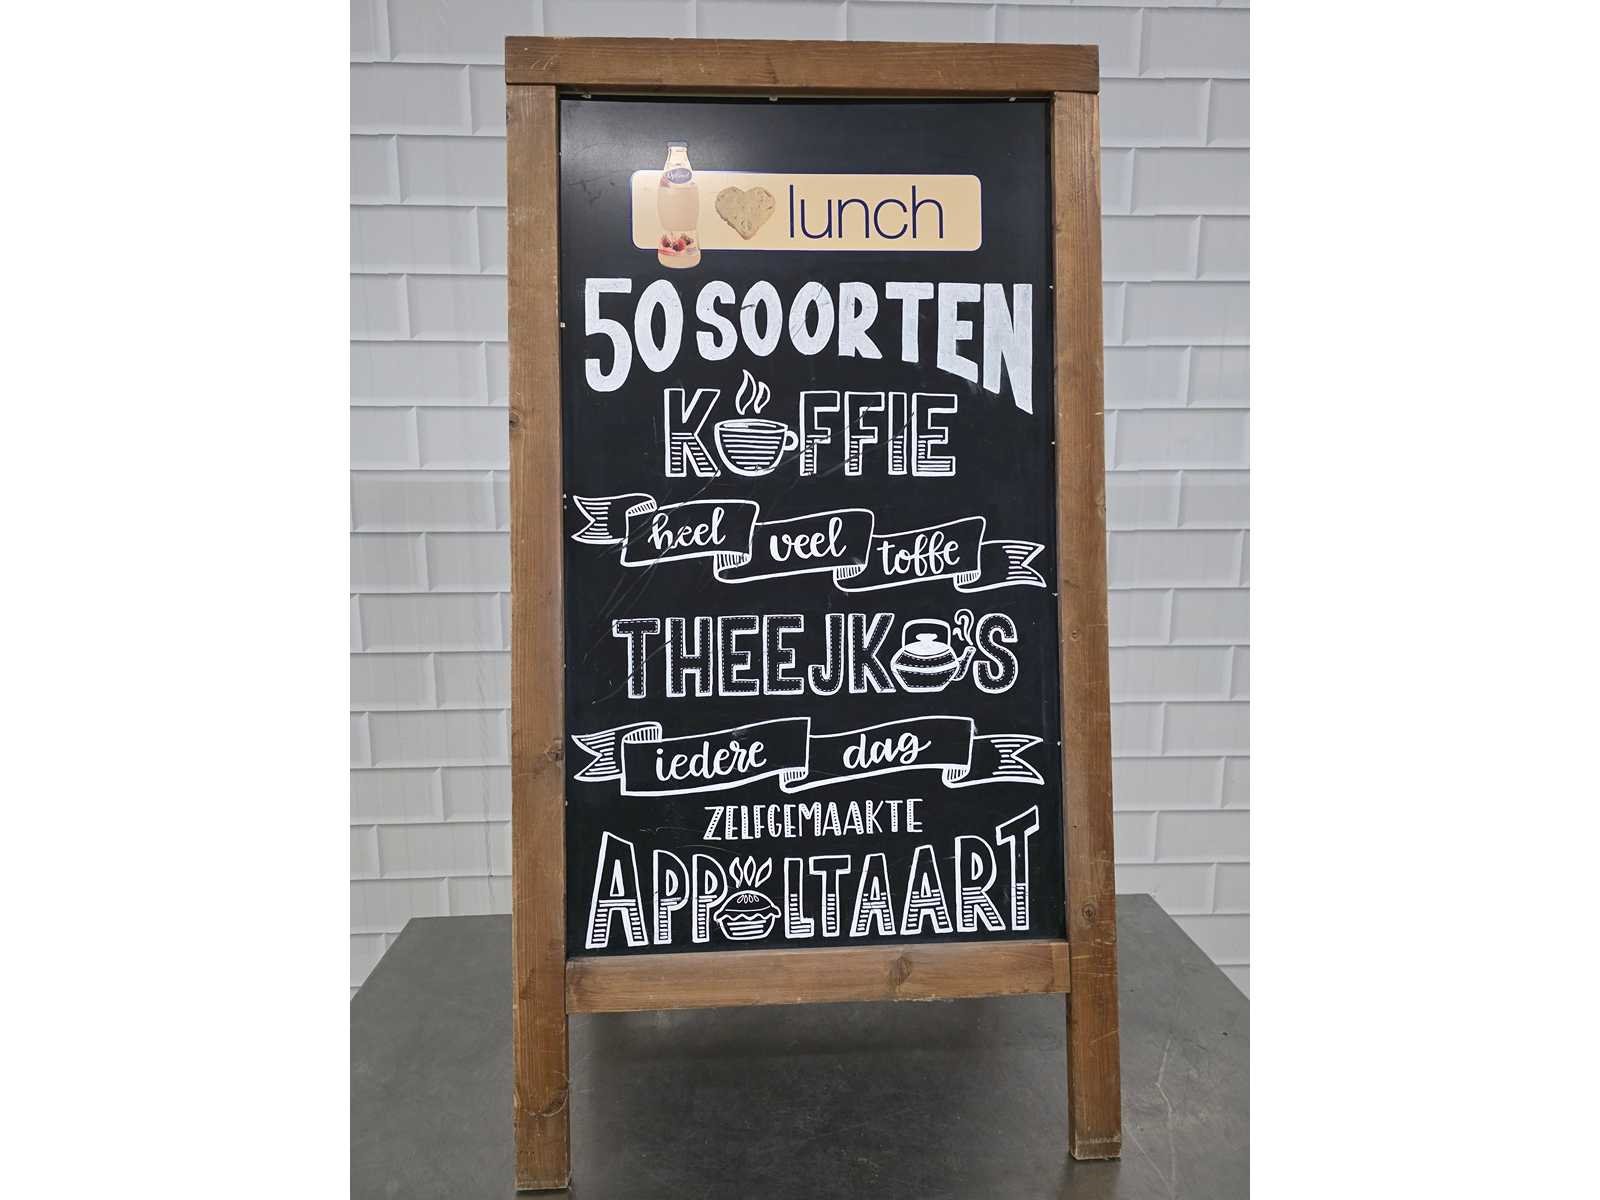 Optimel
lunch
50 SOORTEN
KOFFIE
heel veel toffe
THEEJKO'S
iedere dag
ZELFGEMAAKTE
APPOLTAART